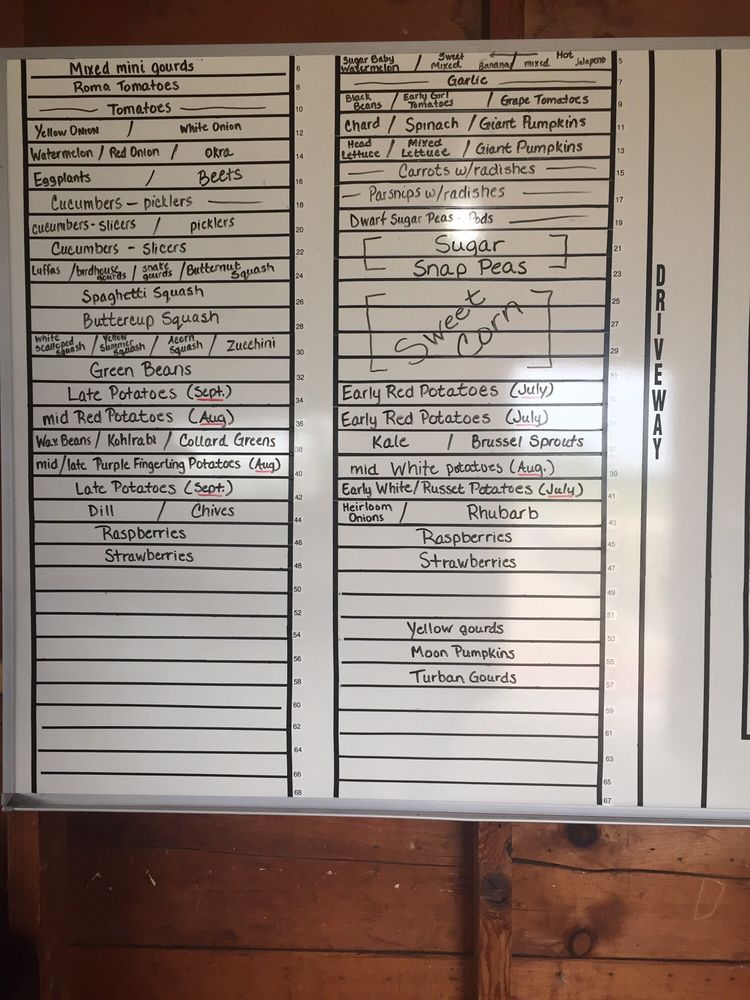 Mixed mini gourds 6
Roma Tomatoes 8
Tomatoes 10
Yellow Onion / White Onion 12
Watermelon / Red Onion / Okra 14
Eggplants / Beets 16
Cucumbers - picklers 18
cucumbers-slicers / picklers 20
Cucumbers - Slicers 22
Luffas / birdhouse gourds / snake gourds / Butternut Squash 24
Spaghetti Squash 26
Buttercup Squash 28
White Scalloped Squash / Yellow Summer Squash / Acorn Squash / Zucchini 30
Green Beans 32
Late Potatoes (Sept.) 34
mid Red Potatoes (Aug) 36
Wax Beans / Kohlrabi / Collard Greens 38
mid/late Purple Fingerling Potatoes (Aug) 40
Late Potatoes (Sept.) 42
Dill / Chives 44
Raspberries 46
Strawberries 48
50
52
54
56
58
60
62
64
66
68
Sugar Baby Watermelon / Sweet Mixed Banana / Hot mixed Jalapeno 5
Garlic 7
Black Beans / Early Girl Tomatoes / Grape Tomatoes 9
Chard / Spinach / Giant Pumpkins 11
Head Lettuce / Mixed Lettuce / Giant Pumpkins 13
Carrots w/radishes 15
Parsnips w/radishes 17
Dwarf Sugar Peas - Pods 19
Sugar 21
Snap Peas 23
25
Sweet 27
Corn 29
31
Early Red Potatoes (July)
Early Red Potatoes (July)
Kale / Brussel Sprouts
mid White potatoes (Aug.) 39
Early White/Russet Potatoes (July) 41
Heirloom Onions / Rhubarb 43
Raspberries 45
Strawberries 47
49
51
Yellow gourds 53
Moon Pumpkins 55
Turban Gourds 57
59
61
63
65
67
DRIVEWAY